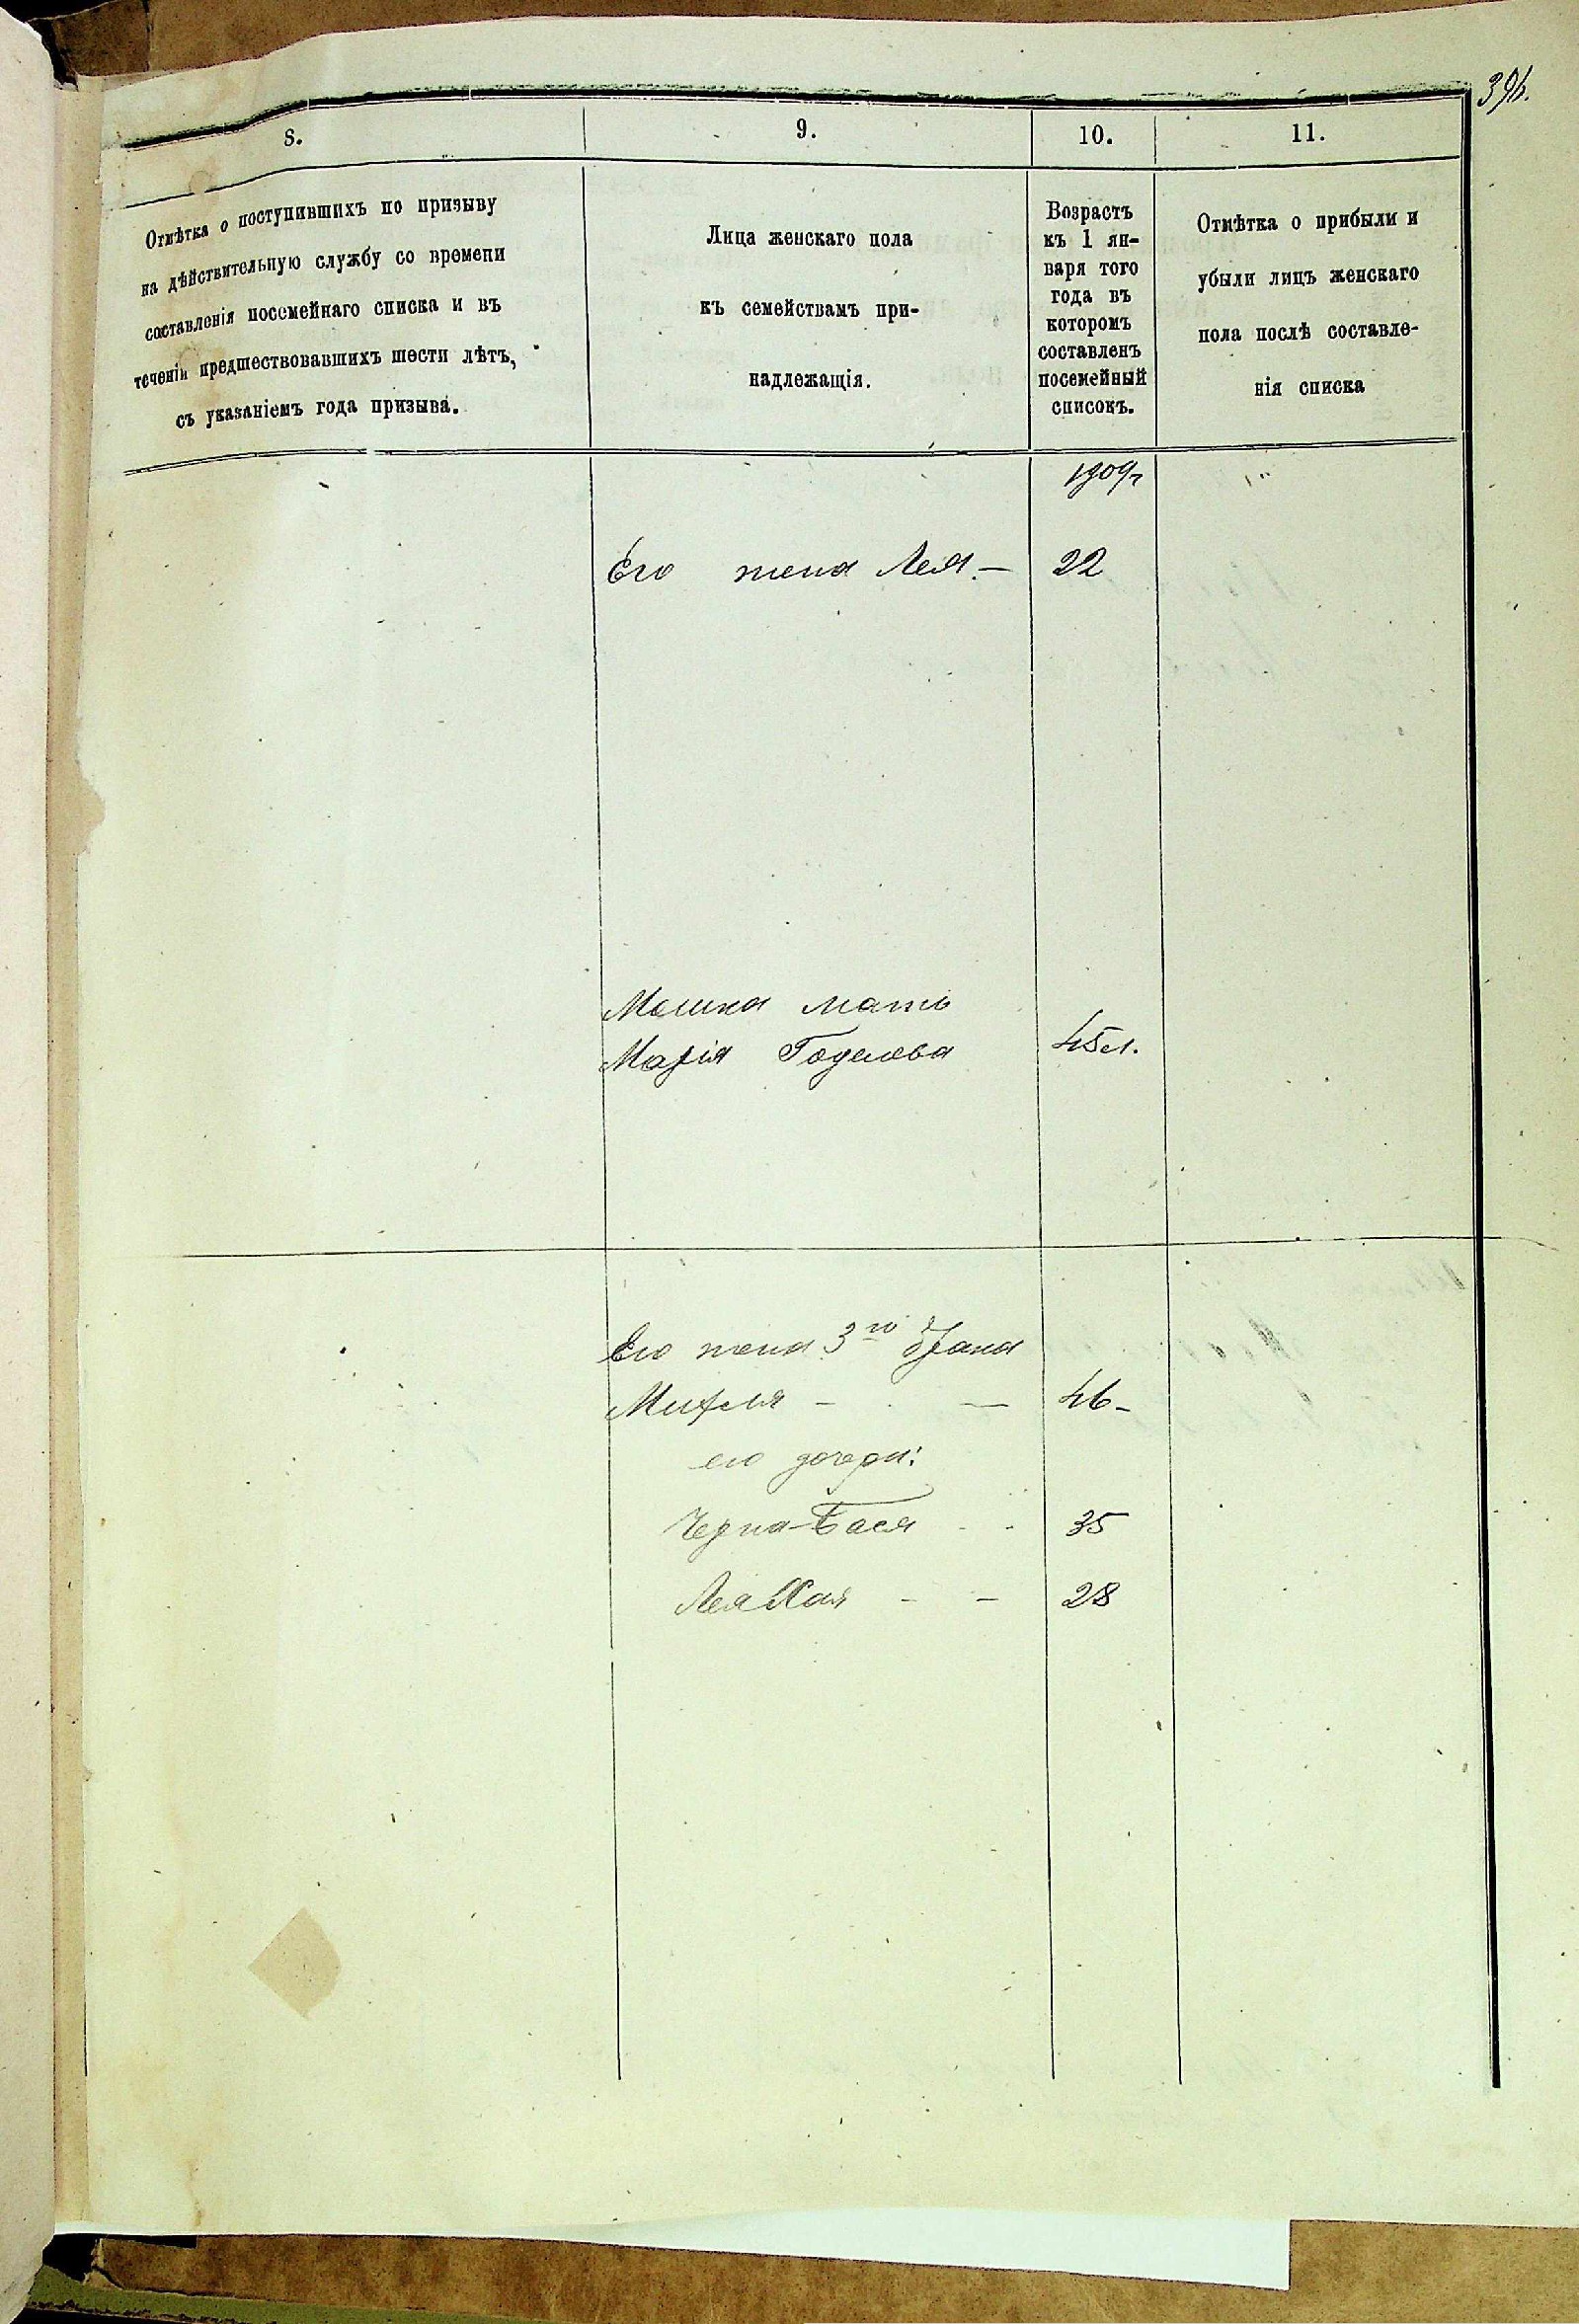 396.
8.
9.
10.
11.
Отмѣтка о поступившихъ по призыву
на дѣйствительную службу со времени
составленія посемейнаго списка и въ
теченіи предшествовавшихъ шести лѣтъ,
съ указаніемъ года призыва.
Лица женскаго пола
къ семействамъ при-
надлежащія.
Возрастъ
къ 1 ян-
варя того
года въ
которомъ
составленъ
посемейный
списокъ.
Отмѣтка о прибыли и
убыли лицъ женскаго
пола послѣ составле-
нія списка
1909г
Его жена Лея. — 22
Мошка мать
Марія Годелева 45 л.
Его жена 3го брака
Михля — — 46 -
его дочери:
Черна-Бася - - 35
Лея Хая - - 28